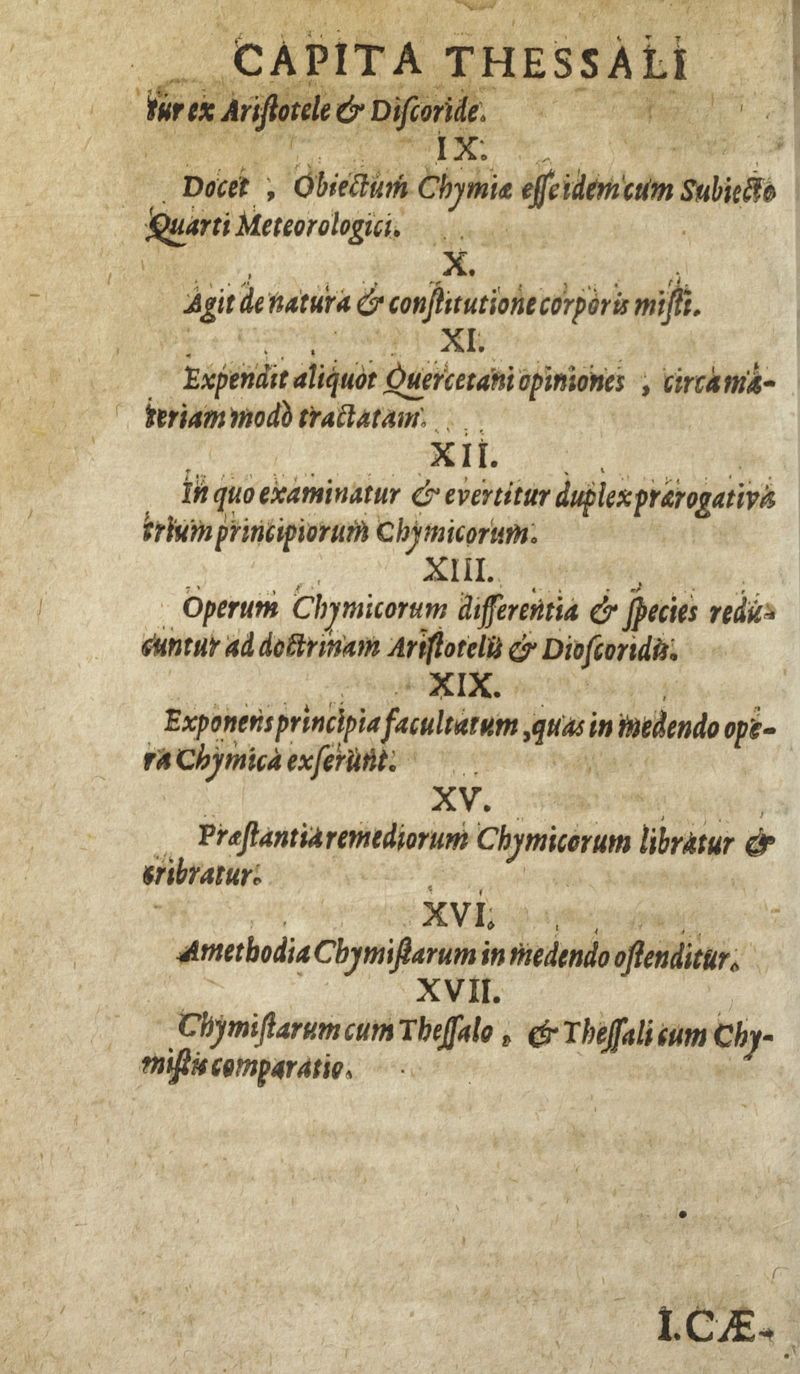 CAPITA THESSALI
tur ex Aristotele & Discoride.
IX.
Docet , Obiectum Chymiæ esse idem cum Subiecto
Quarti Meteorologici.
X.
Agit de natura & constitutione corporis misti.
XI.
Expendit aliquot Quercetani opiniones , circa ma-
teriam modò tractatam.
XII.
In quo examinatur & evertitur duplex prærogativa
trium principiorum Chymicorum.
XIII.
Operum Chymicorum differentia & species redu-
cuntur ad doctrinam Aristotelis & Dioscoridis.
XIX.
Exponens principia facultatum , quas in medendo ope-
ra Chymica exserunt.
XV.
Præstantia remediorum Chymicorum libratur &
cribratur.
XVI.
Amethodia Chymistarum in medendo ostenditur.
XVII.
Chymistarum cum Thessalo , & Thessali cum Chy-
mistis comparatio.
I. CÆ-